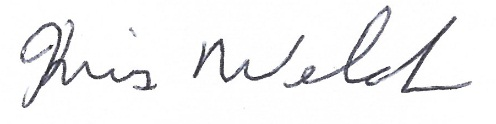 Chris Welch